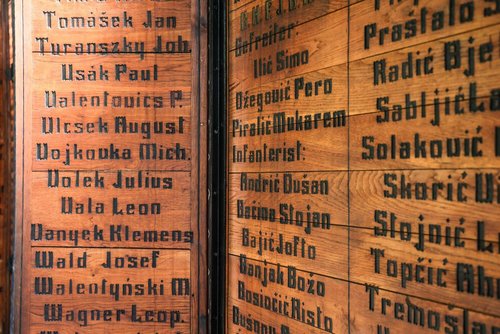 Tomášek Jan
Turanszky Joh.
Usák Paul
Valentovics P.
Vlcsek August
Vojkovka Mich.
Volek Julius
Vala Leon
Vanyek Klemens
Wald Josef
Walentyński M.
Wagner Leop.
Gefreiter:
Ilić Simo
Džegović Pero
Piralić Mukarem
Infanterist:
Andrić Dušan
Bacina Stojan
Bajić Jofto
Banjak Božo
Bosiočić Risto
Prastalo
Radić
Sabljić
Solaković
Skorić
Stojnić
Topčić
Tremošl